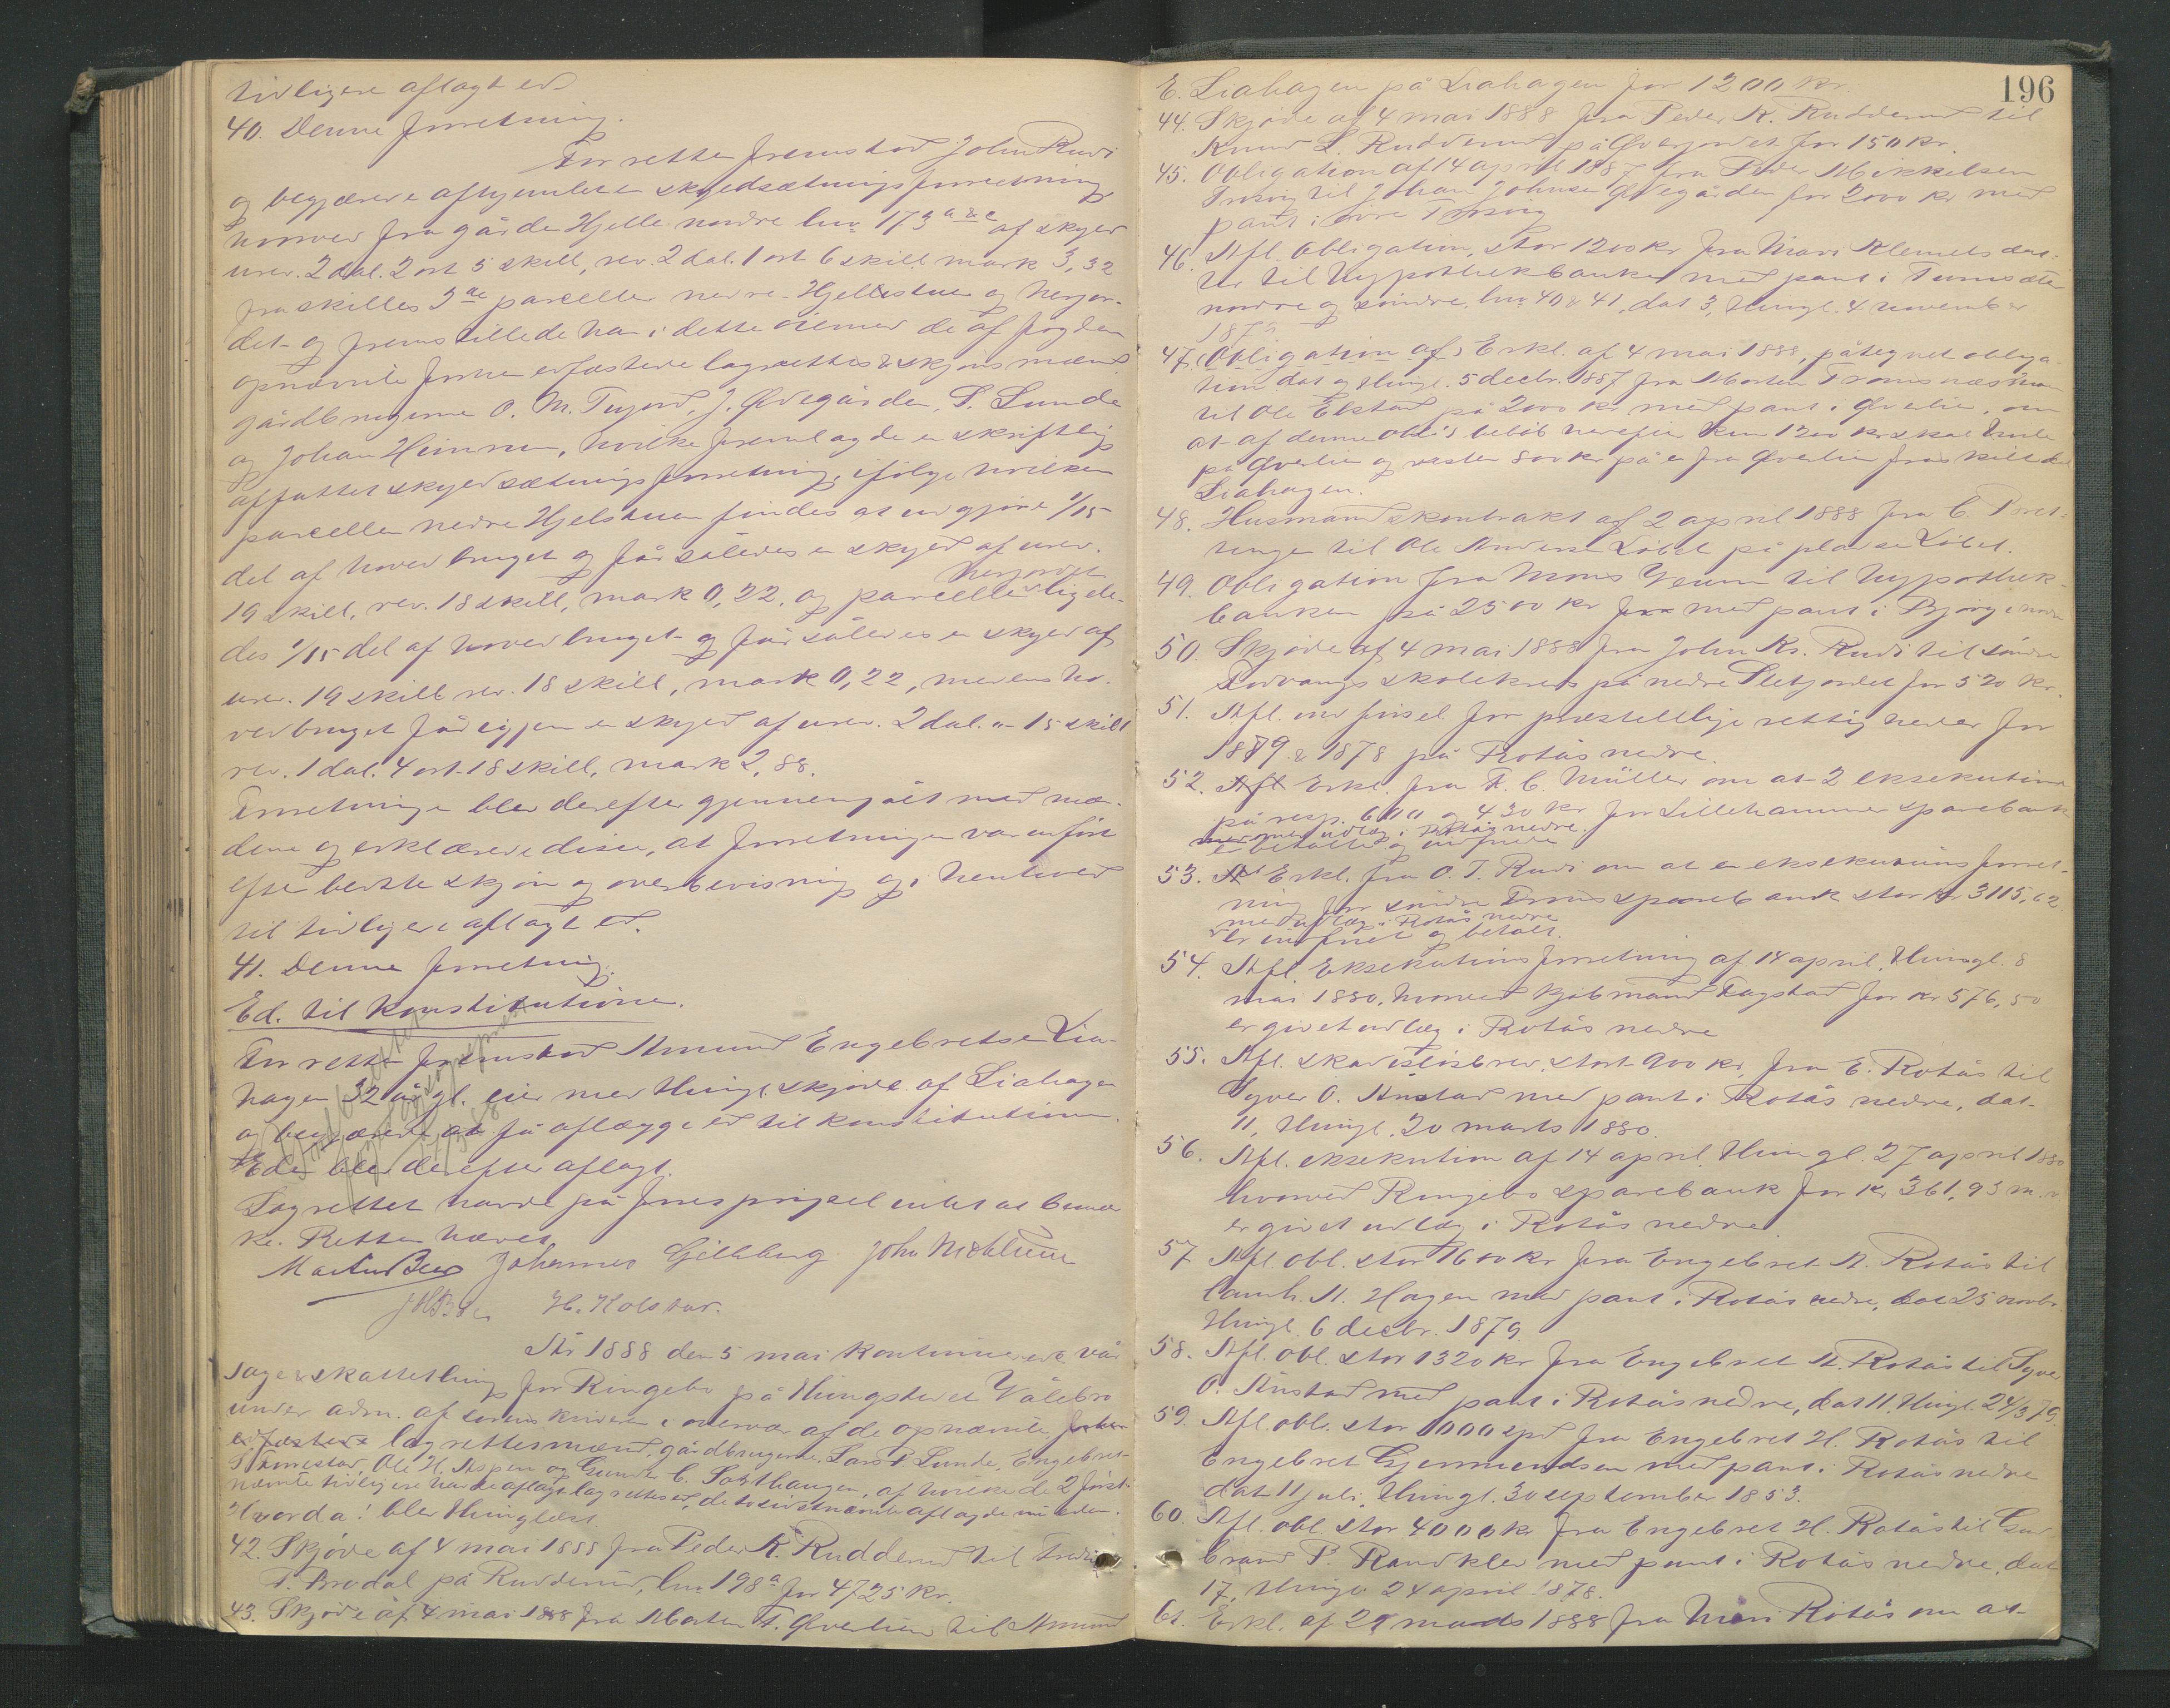 tidligere aflagt ed.
40. Denne forretning.
For retten fremstod John Rudi
og begjærede afhjemlet en skyldsætningsforretning,
hvorved fra gården Hjelle nordre lnr. 173 a & c af skyld
urev. 2 dal. 2 ort 5 skill, rev. 2 dal. 1 ort 6 skill. mark 3,32
fraskilles 2de parceller nedre Hjelstuen og Nerjor-
det og fremstillede han i dette øiemed de af fogden
opnævnte forhen edfæstede lagrettes & skjønsmænd
gårdbrugerne O. M. Tujord, J. Ødegården, S. Lunde
og Johan Heimren, hvilke fremlagde en skriftlig
affattet skyldsætningsforretning, ifølge hvilken
parcellen nedre Hjelstuen findes at udgjøre 1/15
del af hovedbruget og får således en skyld af urev.
19 skill, rev. 18 skill, mark 0,22, og parcellen Nerjordet ligele-
des 1/15 del af hovedbruget og får således en skyld af
urev. 19 skill rev. 18 skill, mark 0,22, medens ho-
vedbruget får igjen en skyld af urev. 2 dal. - 15 skill
rev. 1 dal. 4 ort 18 skill, mark 2,88.
Forretningen blev derefter gjennemgået med mæn-
dene og erklærede disse, at forretningen var udført
efter bedste skjøn og overbevisning og i henhold
til tidligere aflagt ed.
41. Denne forretning.
Ed. til Konstitutionen.
For retten fremstod Amund Engebretsen Lia-
hagen 32 år gl. eier med thingl. skjøde af Liahagen
og begjærede at få aflægge ed til konstitutionen.
Eden blev derefter aflagt.
Lagrettet havde på forespørgsel intet at bemær-
ke. Retten hævet.
Johannes Gillebu John Mæhlum
H. Kolstad.
År 1888 den 5 mai kontinueredes vår
sage & skattething for Ringebo på thingstedet Vålebro
under adm. af sorenskriveren i overvær af de opnævnte forhen
edfæstede lagrettesmænd, gårdbrugerne Lars P. Lunde, Engebret
Torrestad, Ole H. Aspen og Gunder C. Sørthaugen, af hvilke de 2 først-
nævnte tidligere havde aflagt lagrettesed, de to sidstnævnte aflagde nu eden.
Hvorda! blev thinglæst.
42. Skjøde af 4 mai 1888 fra Peder K. Rudderud til Fredrik
P. Brodal på Rudderud, lnr. 198a for 4725 kr.
43. Skjøde af 4 mai 1888 fra Morten F. Øverlien til Amund
196
E. Liahagen på Liahagen for 1200 kr.
44. Skjøde af 4 mai 1888 fra Peder K. Rudderud til
Knud L. Rudderud på Øverjordet for 150 kr.
45. Obligation af 14 april 1887 fra Peder Mikkelsen
til Johan Johnsen Ødegården for 2000 kr med
pant i øvre
46. Afl. obligation, stor 1200 kr fra Mari Klemetsdat-
ter til hypothekbanken med pant i
nordre og søndre, lnr 40 & 41, dat 3, thingl. 4 november
47. Obligation af Erkl. af 4 mai 1888, påtegnet obliga-
tion dat og thingl. 5 decbr. 1887 fra Morten Tromsnæshaug
til Ole Elstad på 2000 kr med pant i Øverlien, om
at af denne obl's beløb herefter kun 1200 kr skal hvile
på Øverlien og resten 800 kr på en fra Øverlien fraskilt del
Liahagen.
48. Husmandskontrakt af 2 april 1888 fra C. Pret-
tungen til Ole Andersen Løbet på pladsen Løbet.
49. Obligation fra Mons Venn til hypothek-
banken på 2500 kr med pant i Bjørge nordre
50. Skjøde af 4 mai 1888 fra John Kr. Rudi til søndre
skolekreds på nedre Sletjordet for 520 kr.
51. Afl. udpinsel for præstetlige rettigheder for
1879 & 1878 på Rotås nedre.
52. Afl Erkl. fra F. C. Müller om at 2 eksekutioner
på resp. 600 og 430 kr for Lillehammer sparebank
med udlæg i Rotås nedre
er betalte og indfriede
53. Erkl. fra O. T. Rudi om at en eksekutionsforret-
ning for søndre Frons sparebank stor kr 3115,62
med udlæg i Rotås nedre
er indfriet og betalt.
54. Afl. Eksekutionsforretning af 14 april, thingl. 8
mai 1880, hvorved kjøbmand Fagstad for kr 576,50
er givet udlæg i Rotås nedre
55. Afl. skadesløsbrev, stort 900 kr, fra E. Rotås til
Syver O. Anstad med pant i Rotås nedre, dat
11, thingl. 20 marts 1880.
56. Afl. eksekution af 14 april, thingl. 27 april 1880
hvorved Ringebo sparebank for kr 361,93 m. v.
er givet udlæg i Rotås nedre.
57 Afl. obl. stor 1600 kr fra Engebret H. Rotås til
Hagen med pant i Rotås nedre, dat 25 novbr.
thingl. 6 decbr. 1879.
58. Afl. obl. stor 1320 kr fra Engebret H. Rotås til Syver
O. Anstad med pant i Rotås nedre, dat 11, thingl. 24/3 79.
59. Afl. obl. stor 1000 spd fra Engebret H. Rotås til
Engebret Gjermundsen med pant i Rotås nedre
dat 11 juli, thingl. 30 september 1853.
60. Afl. obl. stor 4000 kr fra Engebret H. Rotås til Gud-
brand P. Randklev med pant i Rotås nedre, dat
17, thingl. 24 april 1878.
61. Erkl. af 27 marts 1888 fra Mari Rotås om at